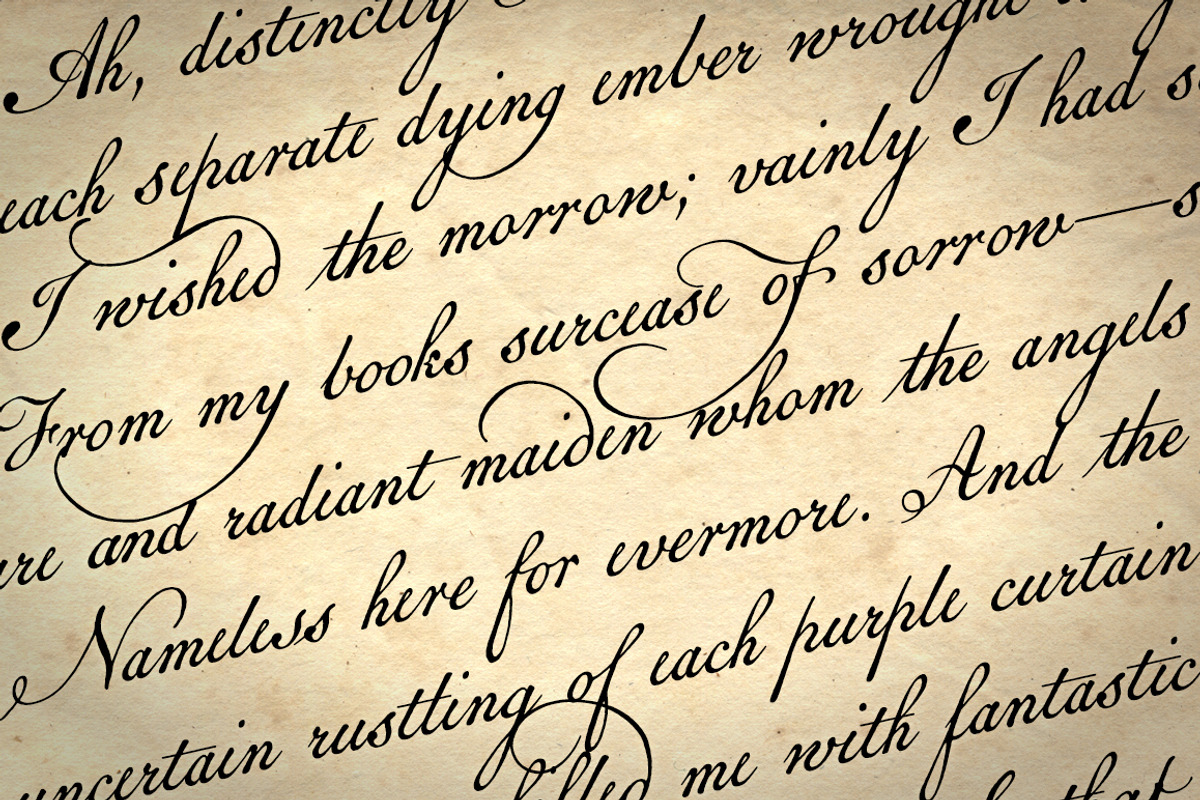 Ah, distinctly
each separate dying ember wrought
I wished the morrow; vainly I had
From my books surcease of sorrow—
and radiant maiden whom the angels
Nameless here for evermore. And the
uncertain rustling of each purple curtain
filled me with fantastic
that